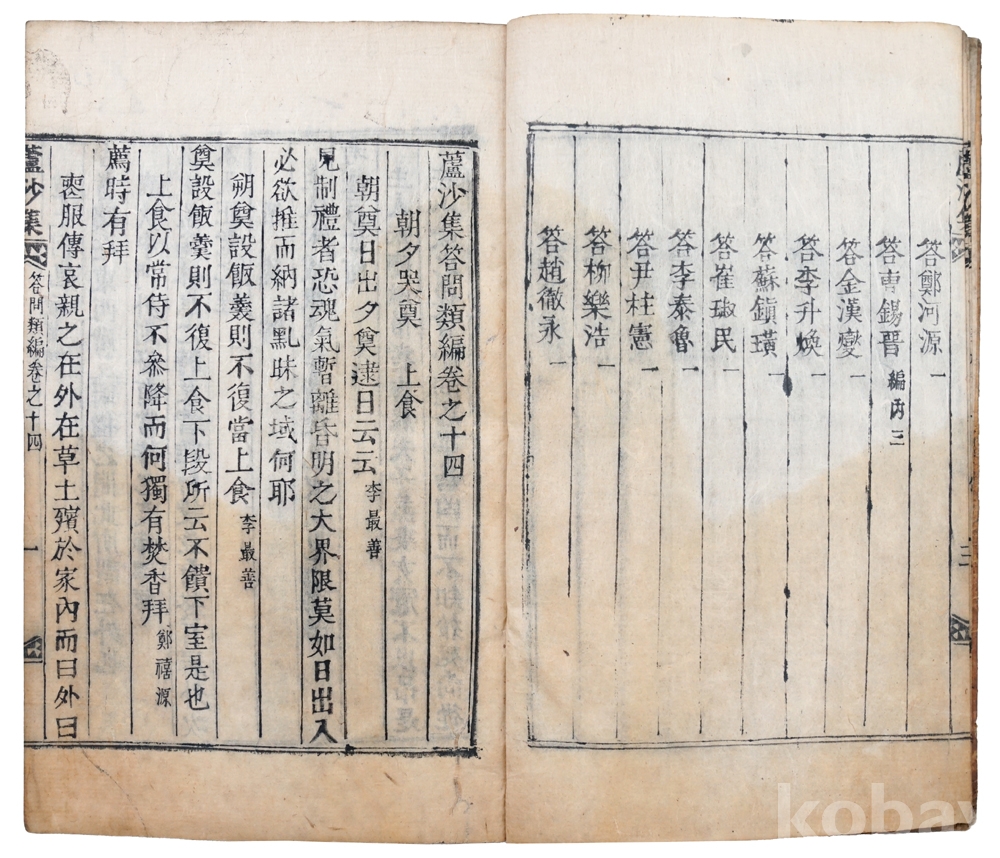 蘆沙集
三
答鄭河源 一
答曺錫晋 編內三
答金漢燮 一
答李升煥 一
答蘇鎮璜 一
答崔琡民 一
答李泰魯 一
答尹柱憲 一
答柳樂浩 一
答趙徹永 一
蘆沙集答問類編卷之十四
朝夕哭奠 上食
朝奠日出夕奠逮日云云 李最善
見制禮者恐魂氣暫離昏明之大界限莫如日出入
必欲推而納諸黑昧之域何耶
朔奠設飯羹則不復當上食 李最善
奠設飯羹則不復上食下段所云不饋下室是也
上食以常侍不參降而何獨有焚香拜 鄭禧源
薦時有拜
喪服傳哀親之在外在草土殯於家內而曰外曰
蘆沙集 答問類編卷之十四 一
kobay